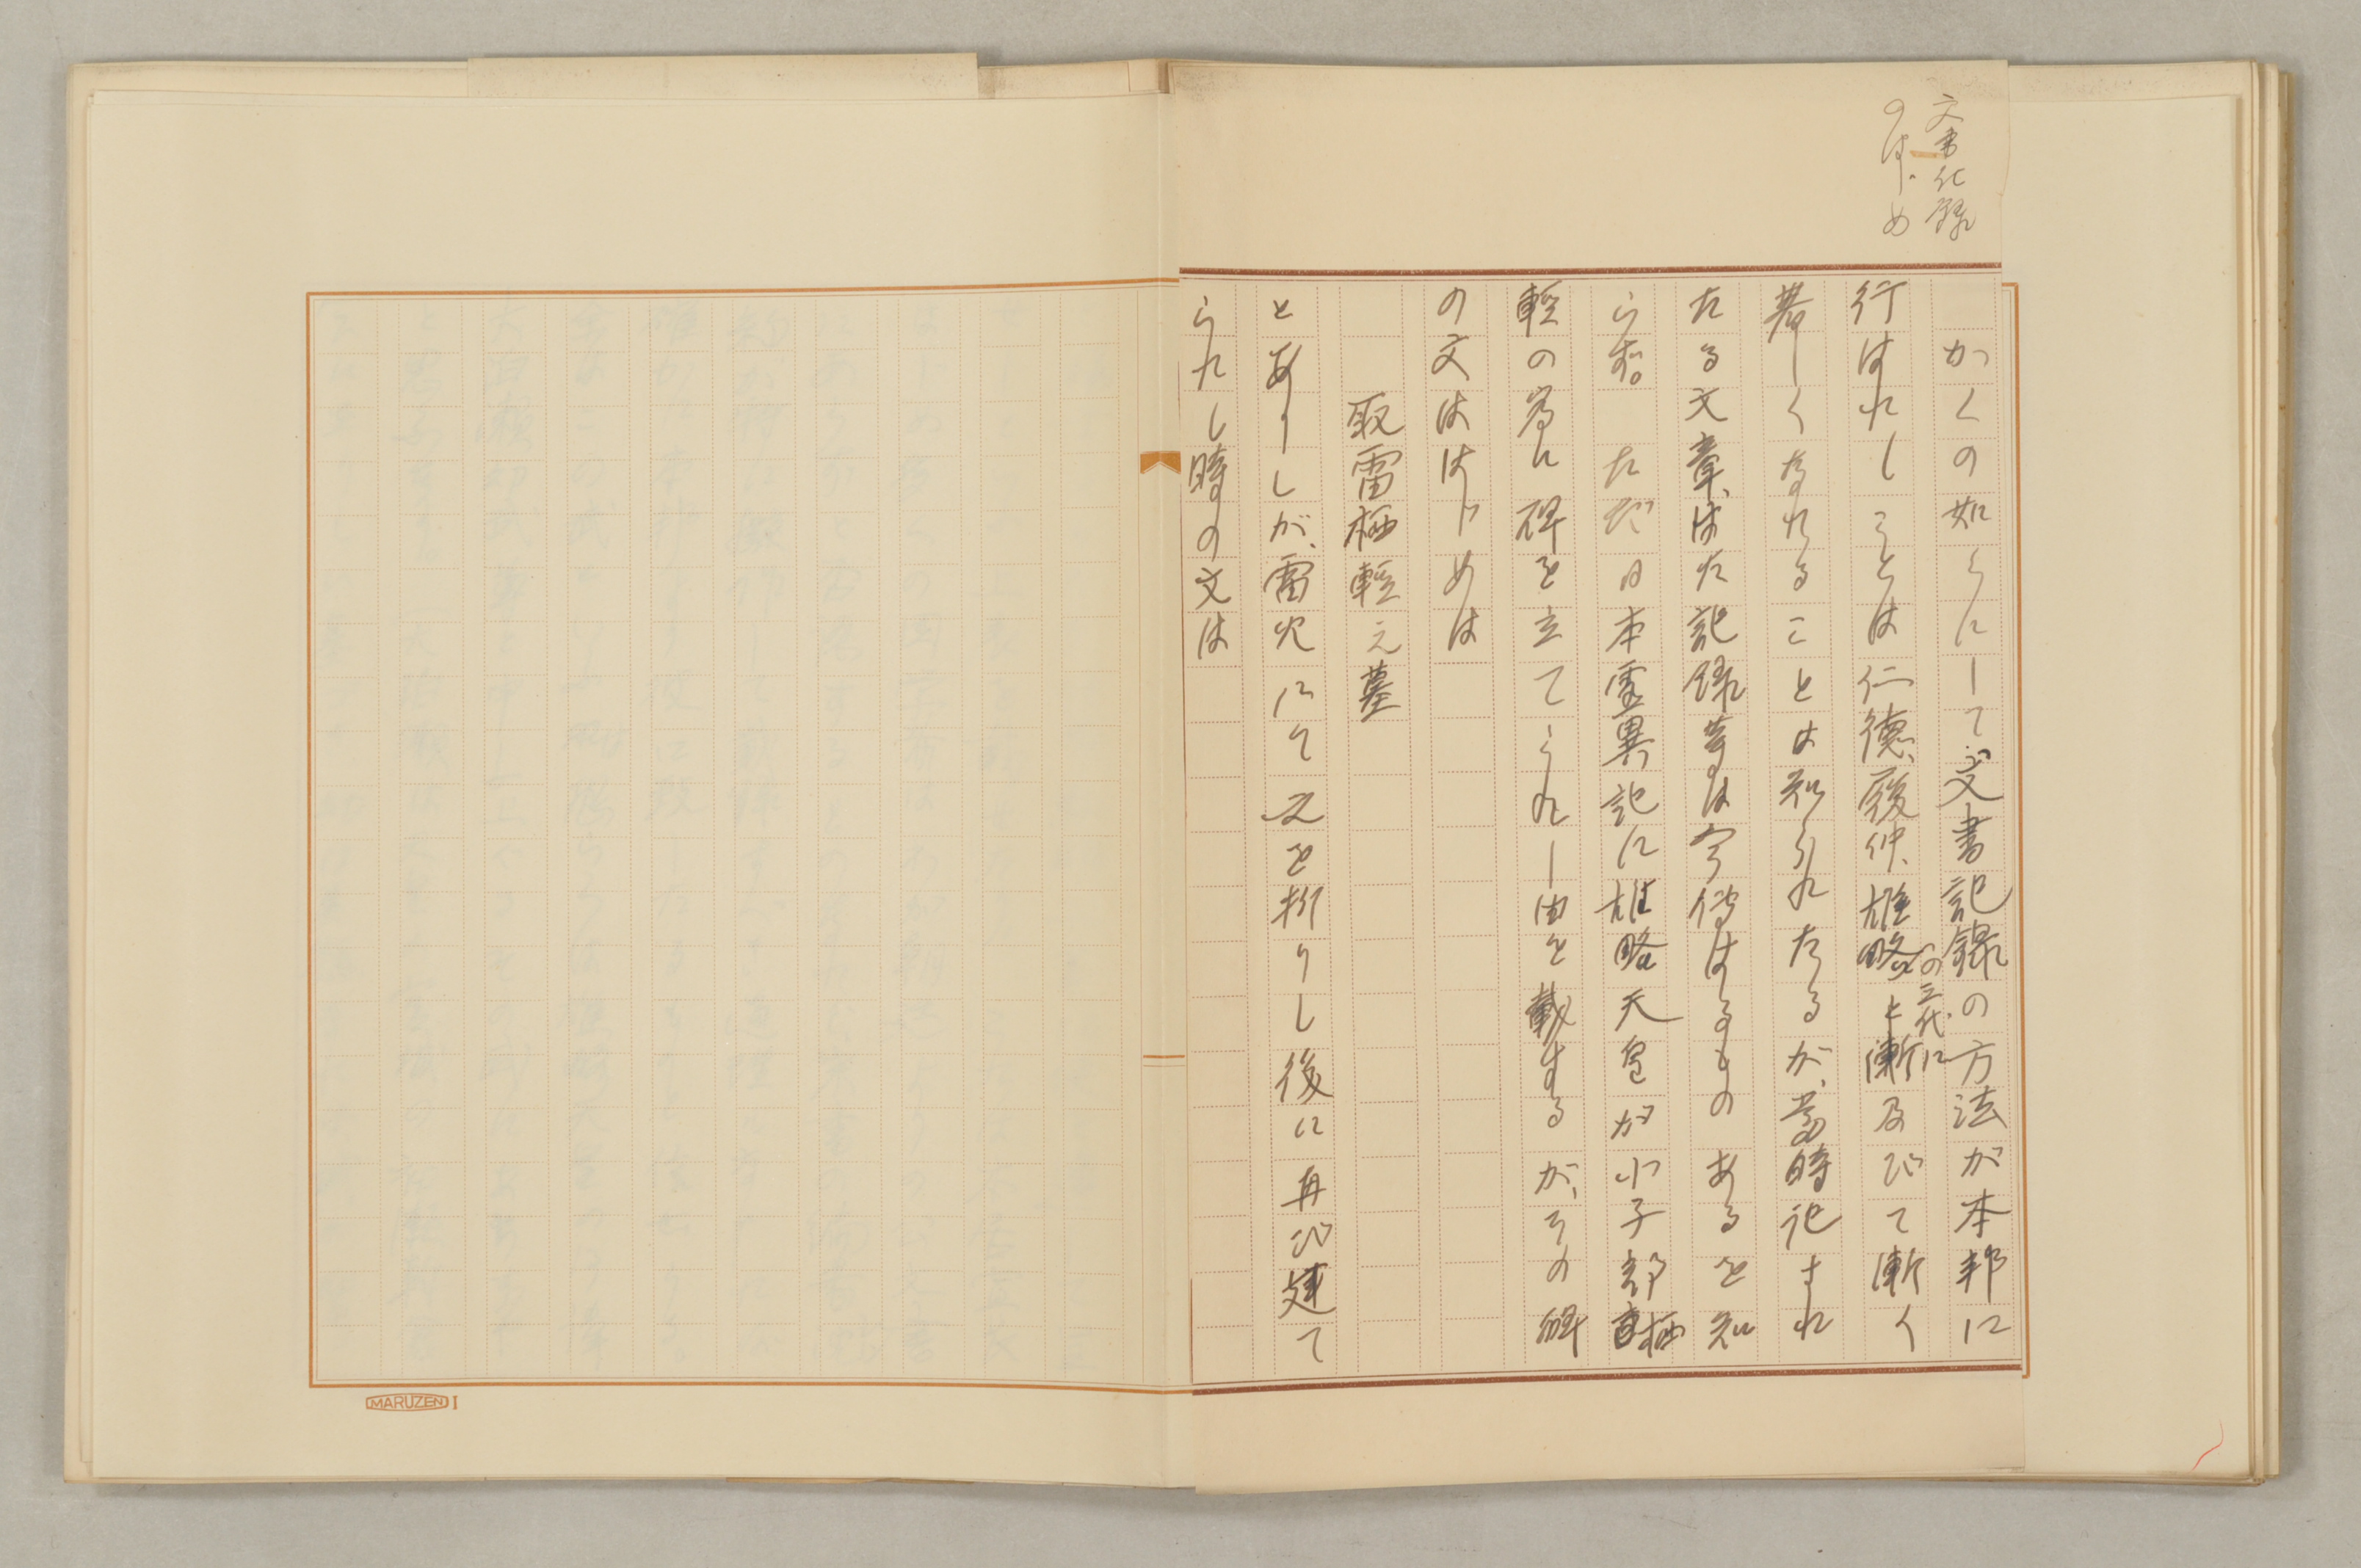 文書記録
のはじめ
かくの如くにして文書記録の方法が本邦に
行はれしことは仁徳、履仲、雄略の三代に漸及びて漸く
著しくなれることは知られたるが、当時記され
たる文章、はた記録等は今伝はるものあるを知
らず。ただ日本霊異記に雄略天皇が小子部栖
軽の為に碑を立てられし由を載するが、その碑
の文ははじめは
取雷栖軽之墓
とありしが、雷火にて之を折りし後に再び建て
られし時の文は
MARUZEN I